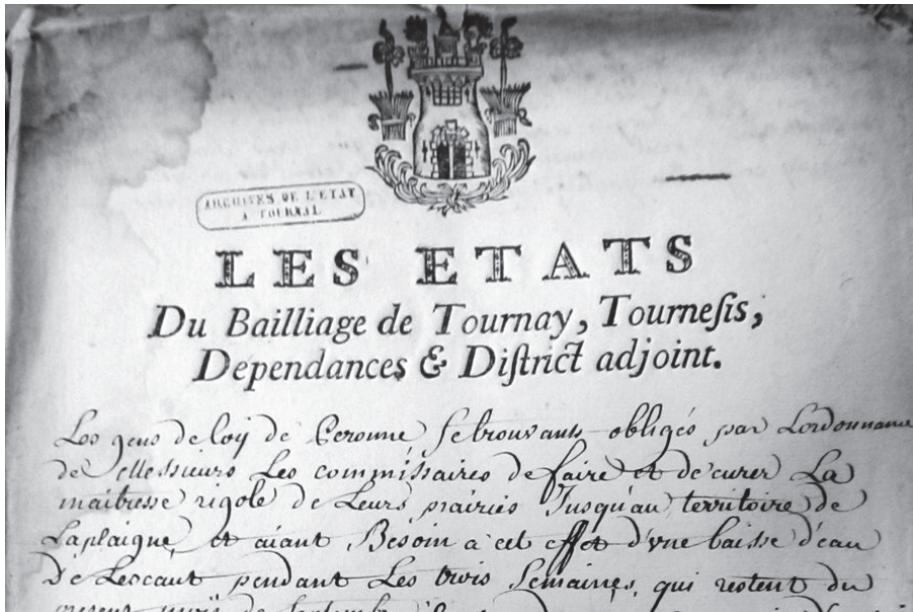 ARCHIVES DE L'ETAT
A TOURNAI
LES ETATS
Du Bailliage de Tournay, Tourneſis,
Dépendances & Diſtrict adjoint.
Les gens de loy de Peronne se trouvants obligés par Lordonnance
de Messieurs Les commissaires de faire et de curer La
maitresse rigole de Leurs prairies Jusqu'au territoire de
Laplaigne, et aiant Besoin a cet effet d'vne baisse d'eau
De Lescaut pendant Les trois Semaines, qui restent du
present mois de